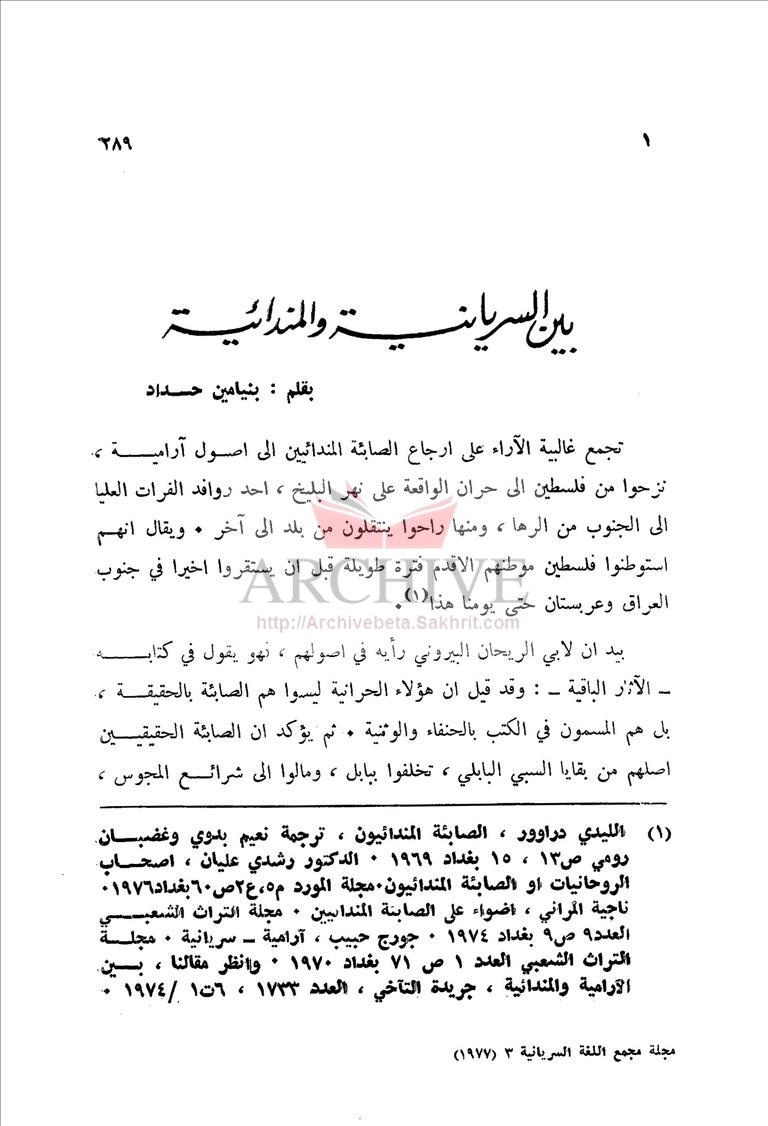 ١ ٢٨٩
بين السريانية والمندائية
بقلم : بنيامين حـــداد
تجمع غالبية الآراء على ارجاع الصابئة المندائيين الى اصـول آراميــــة ،
نزحوا من فلسطين الى حران الواقعة على نهر البليخ ، احد روافد الفرات العليا
الى الجنوب من الرها ، ومنها راحوا ينتقلون من بلد الى آخر ٠ ويقال انهــم
استوطنوا فلسطين موطنهم الاقدم فترة طويلة قبل ان يستقروا اخيرا في جنوب
العراق وعربستان حتى يومنا هذا(١) ٠
ARCHIVE
http://Archivebeta.Sakhrit.com
بيد ان لابي الريحان البيروني رأيه في اصولهم ، نهو يقول في كتابـــــه
ــ الآثار الباقية ــ : وقد قيل ان هؤلاء الحرانية ليسوا هم الصابئة بالحقيقــة ،
بل هم المسمون في الكتب بالحنفاء والوثنية ٠ ثم يؤكد ان الصابئة الحقيقيــين
اصلهم من بقايا السبي البابلي ، تخلفوا ببابل ، ومالوا الى شرائـــع المجوس ،
(١) الليدي دراوور ، الصابئة المندائيون ، ترجمة نعيم بدوي وغضبــان
رومي ص١٣ ، ١٥ بغداد ١٩٦٩ ٠ الدكتور رشدي عليان ، اصحــاب
الروحانيات او الصابئة المندائيون٠مجلة المورد م٥،ع٢ص٦٠بغداد١٩٧٦٠
ناجية المراني ، اضواء على الصابئة المندائيين ٠ مجلة التراث الشعبــــي
العدد٩ ص٩ بغداد ١٩٧٤ ٠ جورج حبيب ، آرامية ــ سريانية ٠ مجلــة
التراث الشعبي العدد ١ ص ٧١ بغداد ١٩٧٠ ٠ وانظر مقالنا ، بــين
الآرامية والمندائية ، جريدة التآخي ، العدد ١٧٣٣ ، ٦ت١ /١٩٧٤ ٠
مجلة مجمع اللغة السريانية ٣ (١٩٧٧)